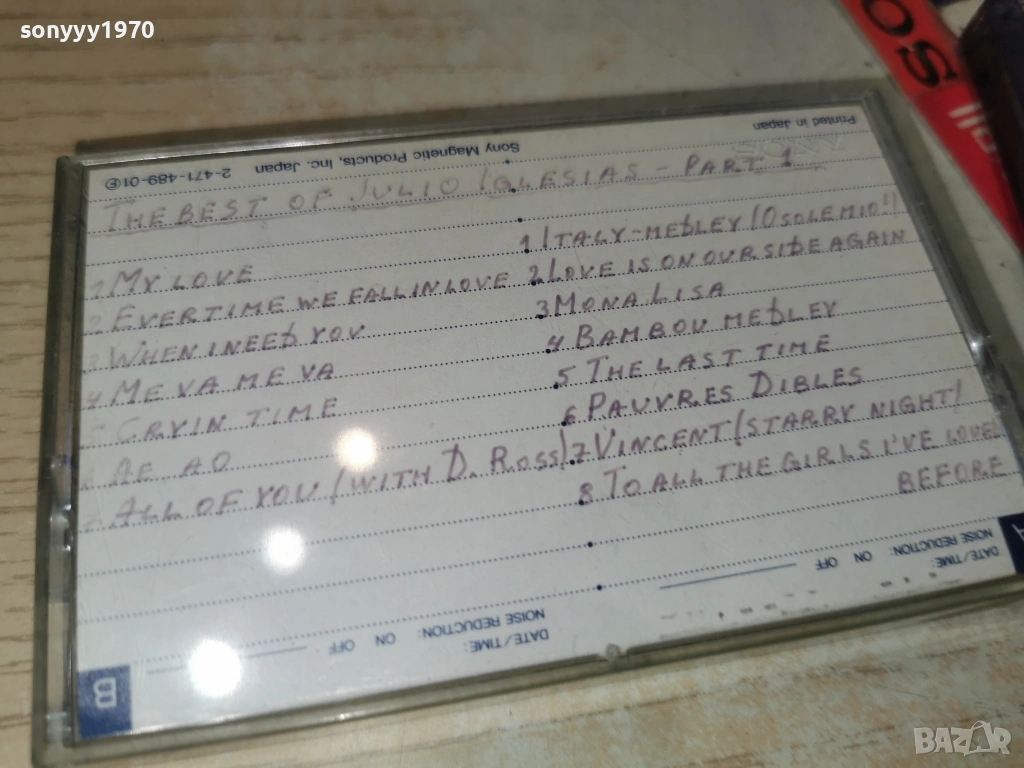 sonyyy1970
SO
Printed in Japan
Sony Magnetic Products, Inc. Japan 2-471-489-01
THE BEST OF JULIO IGLESIAS - PART 1
1 MY LOVE
2 EVERTIME WE FALL IN LOVE
3 WHEN I NEED YOU
4 ME VA ME VA
5 CRYIN TIME
6 AE AO
ALL OF YOU (WITH D. ROSS)
1 ITALY-MEDLEY (O SOLE MIO!)
2 LOVE IS ON OUR SIDE AGAIN
3 MONA LISA
4 BAMBOU MEDLEY
5 THE LAST TIME
6 PAUVRES DIBLES
7 VINCENT (STARRY NIGHT)
8 TO ALL THE GIRLS I'VE LOVED
BEFORE
DATE/TIME:
NOISE REDUCTION: ON OFF
DATE/TIME:
NOISE REDUCTION: ON OFF
B
BAZAR